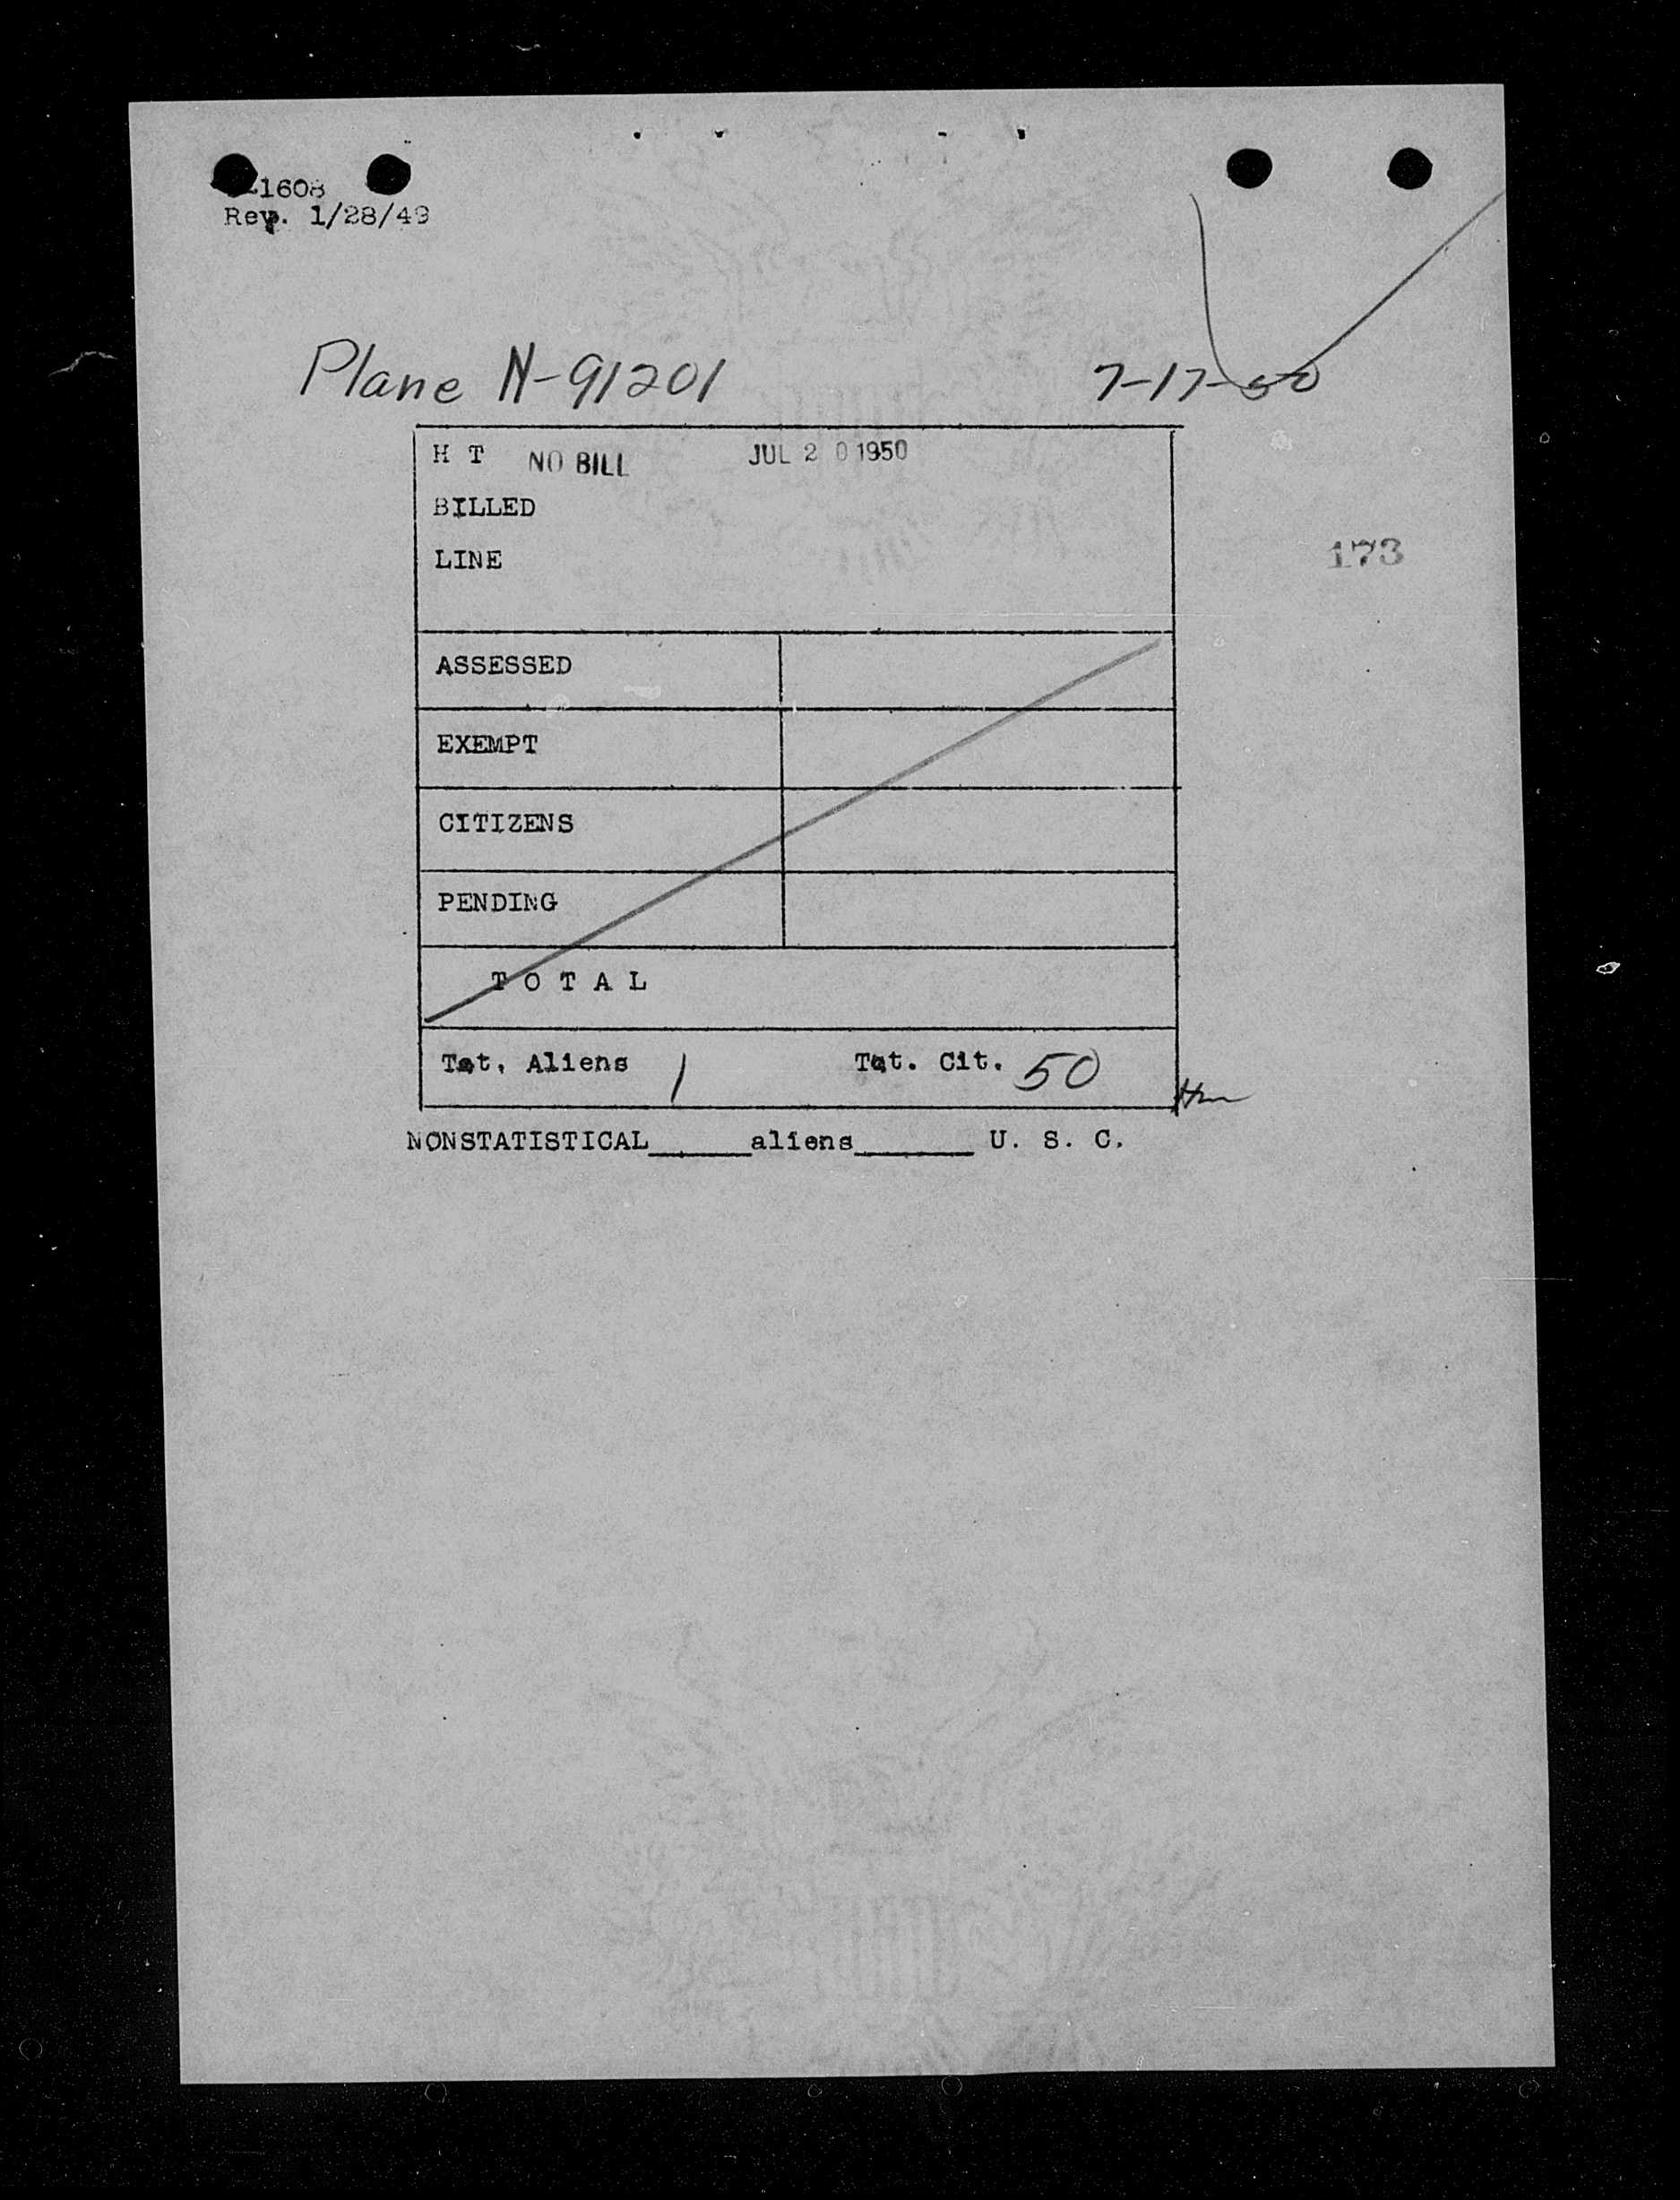 1608
Rev. 1/28/49
Plane N-91201 7-17-50
H T NO BILL JUL 20 1950
BILLED
LINE
173
ASSESSED
EXEMPT
CITIZENS
PENDING
T O T A L
Tot. Aliens 1 Tot. Cit. 50
NONSTATISTICAL______aliens_______ U. S. C.